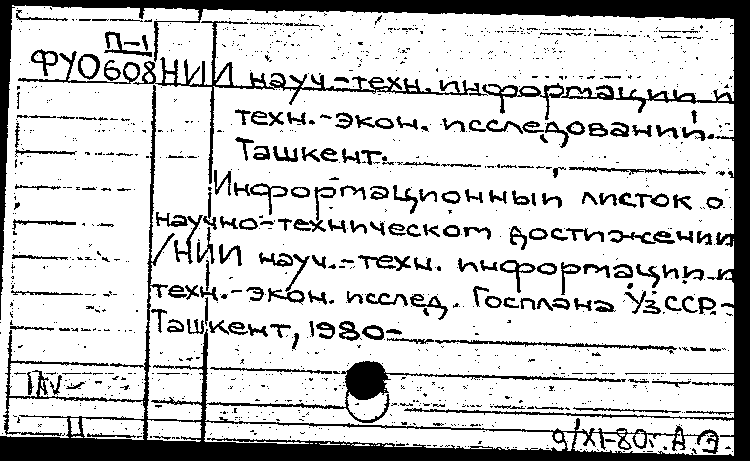 П-1
ФУ0608 НИИ науч.-техн. информации и
техн.-экон. исследований.
Ташкент.
Информационный листок о
научно-техническом достижении
/НИИ науч.-техн. информации и
техн.-экон. исслед. Госплана УзССР.-
Ташкент, 1980-
9/XI-80г. А.Э.